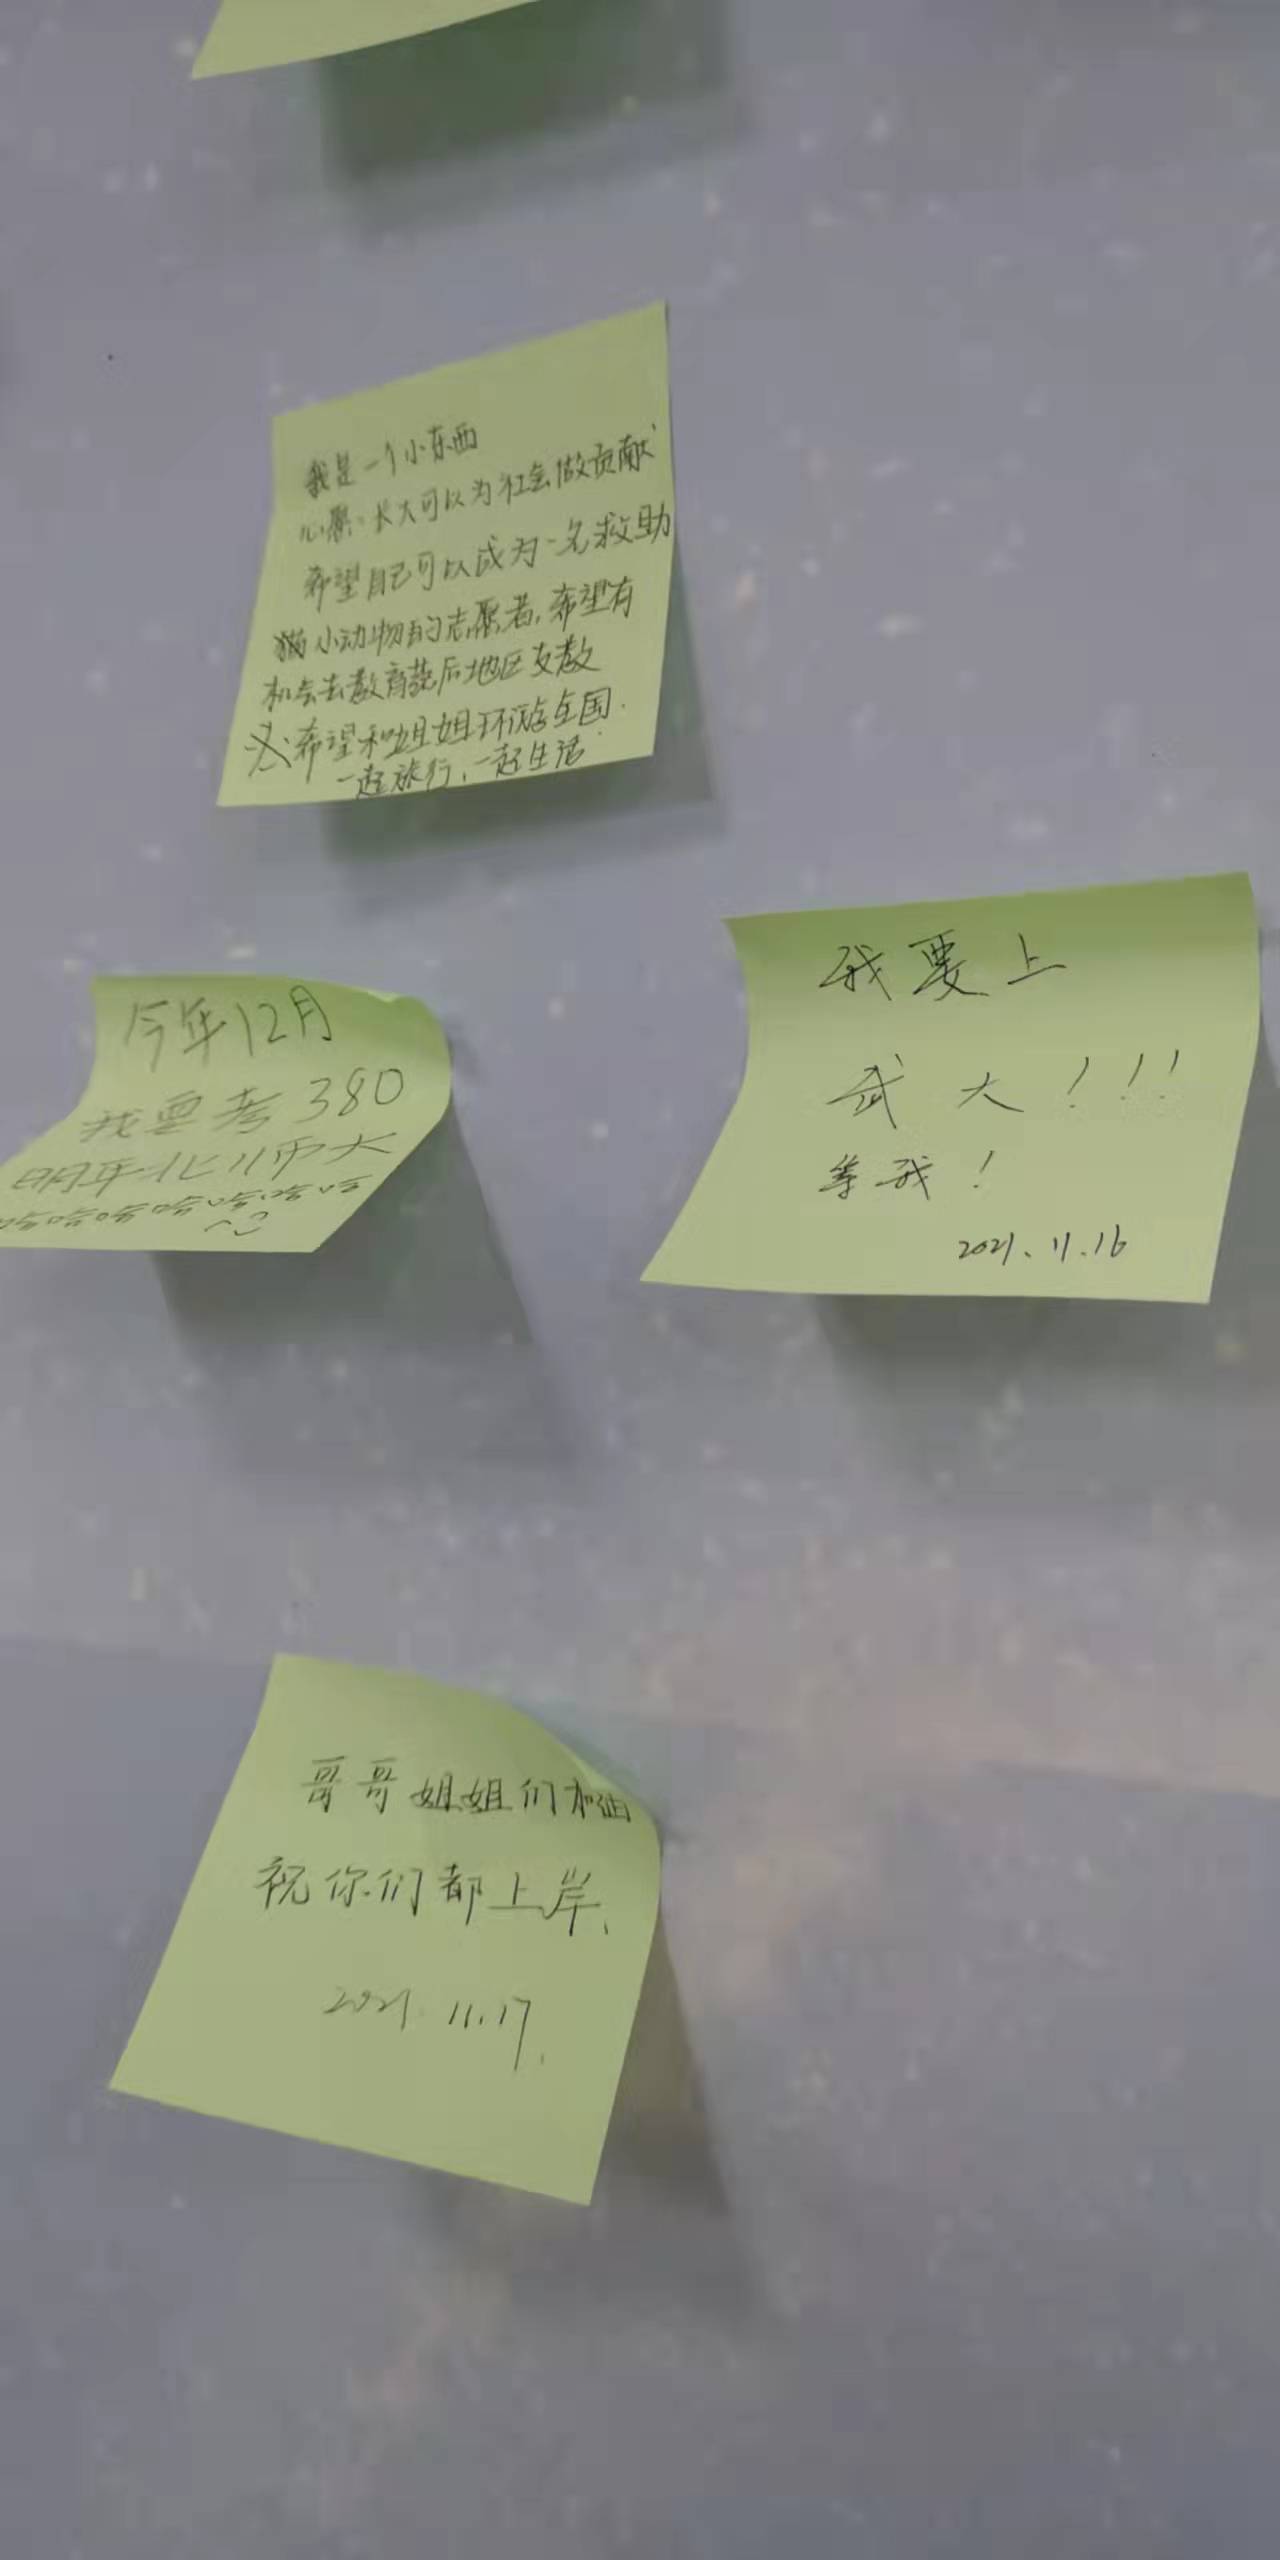 我是一个小东西
心愿:长大可以为社会做贡献
希望自己可以成为一名救助
猫小动物的志愿者,希望有
机会去教育落后地区支教
必希望和姐姐环游全国.
一起旅行,一起生活.
今年12月
我要考380
明年北师大
哈哈哈哈哈哈哈
我要上
武大!!!
等我!
2021.11.16
哥哥姐姐们加油
祝你们都上岸、
2021.11.17.